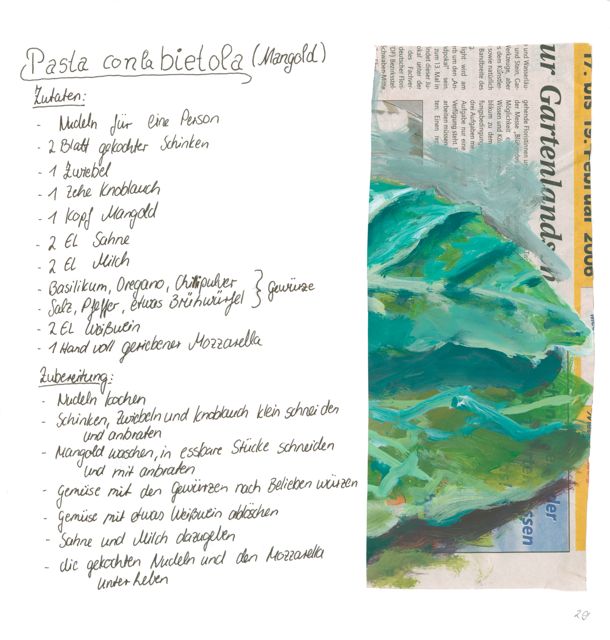 Pasta con la bietola (Mangold)
Zutaten:
- Nudeln für eine Person
- 2 Blatt gekochter Schinken
- 1 Zwiebel
- 1 Zehe Knoblauch
- 1 Kopf Mangold
- 2 EL Sahne
- 2 EL Milch
- Basilikum, Oregano, Chilipulver
- Salz, Pfeffer, etwas Brühwürfel } Gewürze
- 2 EL Weißwein
- 1 Hand voll geriebener Mozzarella
Zubereitung:
- Nudeln kochen
- Schinken, Zwiebeln und Knoblauch klein schneiden
und anbraten
- Mangold waschen, in essbare Stücke schneiden
und mit anbraten
- Gemüse mit den Gewürzen nach Belieben würzen
- Gemüse mit etwas Weißwein ablöschen
- Sahne und Milch dazugeben
- die gekochten Nudeln und den Mozzarella
unterheben
17. bis 19. Februar 2006
ur Gartenlands
der
issen